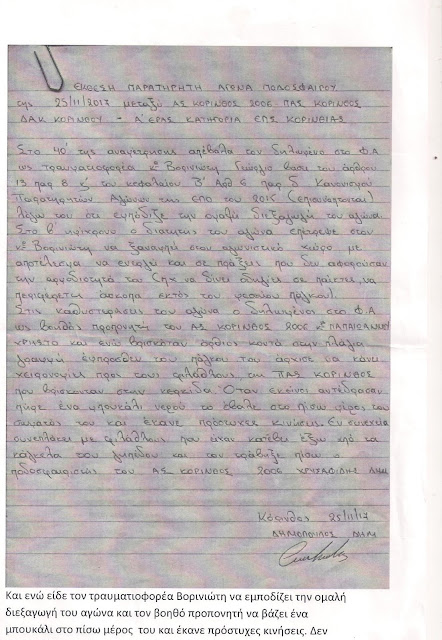 ΕΚΘΕΣΗ ΠΑΡΑΤΗΡΗΤΗ ΑΓΩΝΑ ΠΟΔΟΣΦΑΙΡΟΥ
της 25/11/2017 μεταξύ ΑΣ ΚΟΡΙΝΘΟΣ 2006 - ΠΑΣ ΚΟΡΙΝΘΟΣ
ΔΑΚ ΚΟΡΙΝΘΟΥ - Α' ΕΡΑΣ ΚΑΤΗΓΟΡΙΑ ΕΠΣ ΚΟΡΙΝΘΙΑΣ
Στο 40' της αναμέτρησης απέβαλα τον δηλωμένο στο Φ.Α
ως τραυματιοφορέα κο Βορινιώτη Γιώργο βάση του άρθρου
13 παρ 8 κ' του κεφαλαίου Β' Αρθ 6 παρ δ Κανονισμού
Παρατηρητών Αγώνων της ΕΠΟ του 2015 (επισυνάπτεται)
λόγω του ότι εμπόδιζε την ομαλή διεξαγωγή του αγώνα.
Στο β' ημίχρονο ο διαιτητής του αγώνα επέτρεψε στον
κο Βορινιώτη να ξαναμπεί στον αγωνιστικό χώρο με
αποτέλεσμα να εντολή και σε πράξεις που δεν αφορούσαν
την αρμοδιότητά του (πχ να δίνει οδηγίες σε παίκτες, να
περιφέρεται άσκοπα εκτός του φυσικού πάγκου).
Στις καθυστερήσεις του αγώνα ο δηλωμένος στο Φ.Α
ως βοηθός προπονητή του ΑΣ ΚΟΡΙΝΘΟΣ 2006 κο ΠΑΠΑΙΩΑΝΝΟΥ
ΧΡΗΣΤΟ και ενώ βρισκόταν όρθιος κοντά στην πλάγια
γραμμή έμπροσθεν του πάγκου του άρχισε να κάνει
χειρονομίες προς τους φιλάθλους της ΠΑΣ ΚΟΡΙΝΘΟΣ
που βρίσκονταν στην κερκίδα. Όταν εκείνοι αντέδρασαν
πήρε ένα μπουκάλι νερού το έβαλε στο πίσω μέρος του
σώματός του και έκανε πρόστυχες κινήσεις. Εν συνεχεία
συνεπλάκει με φιλάθλους που είχαν κατέβει έξω από τα
κάγκελα του γηπέδου και τον τράβηξε πίσω ο
ποδοσφαιριστής του ΑΣ ΚΟΡΙΝΘΟΣ 2006 ΧΡΥΣΑΦΙΔΗΣ
Κόρινθος 25/11/17
ΔΗΜΟΠΟΥΛΟΣ ΔΗΜ
Και ενώ είδε τον τραυματιοφορέα Βορινιώτη να εμποδίζει την ομαλή
διεξαγωγή του αγώνα και τον βοηθό προπονητή να βάζει ένα
μπουκάλι στο πίσω μέρος του και έκανε πρόστυχες κινήσεις. Δεν